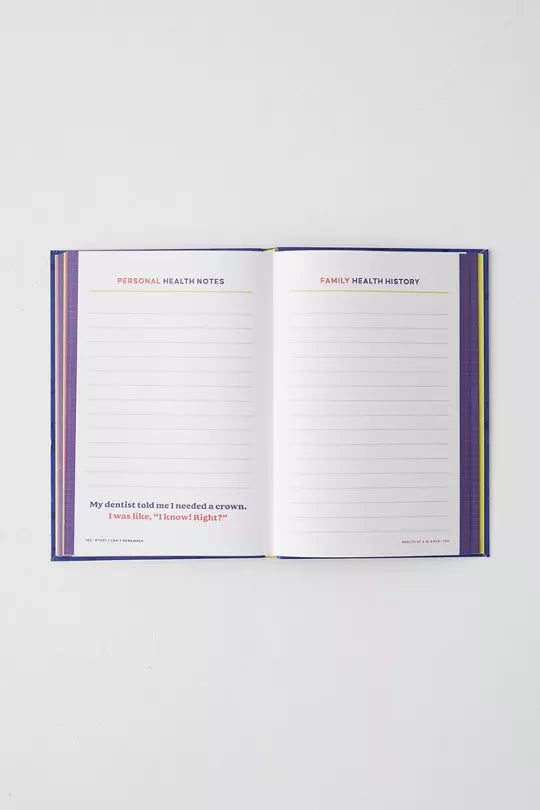 PERSONAL HEALTH NOTES
My dentist told me I needed a crown.
I was like, “I know! Right?”
STUFF I CAN'T REMEMBER
FAMILY HEALTH HISTORY
HEALTH AT A GLANCE